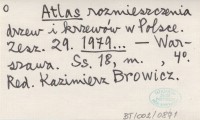 O
Atlas rozmieszczenia
drzew i krzewów w Polsce.
Zesz. 29. 1979... — War-
szawa. Ss. 18, m. , 4°.
Red. Kazimierz Browicz.
BT/002/0871